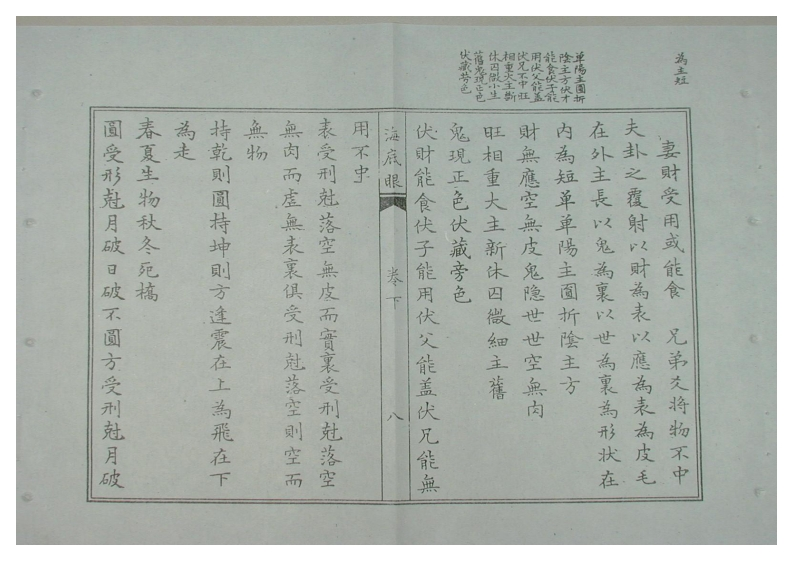 為主短
單陽主圓折
陰主方伏才
能食伏子能
用伏父能盖
伏兄不中旺
相重大主斷
休囚微小生
舊鬼現正色
伏藏旁色
妻財受用或能食　兄弟爻將物不中
夫卦之覆射以財為表以應為表為皮毛
在外主長以鬼為裏以世為裏為形狀在
內為短單單陽主圓折陰主方
財無應空無皮鬼隐世世空無肉
旺相重大主新休囚微細主舊
鬼現正色伏藏旁色
伏財能食伏子能用伏父能盖伏兄能無
海底眼
卷下
八
用不中
表受刑尅落空無皮而實裏受刑尅落空
無肉而虛無表裏俱受刑尅落空則空而
無物
持乾則圓持坤則方逢震在上為飛在下
為走
春夏生物秋冬死槁
圓受形尅月破日破不圓方受刑尅月破